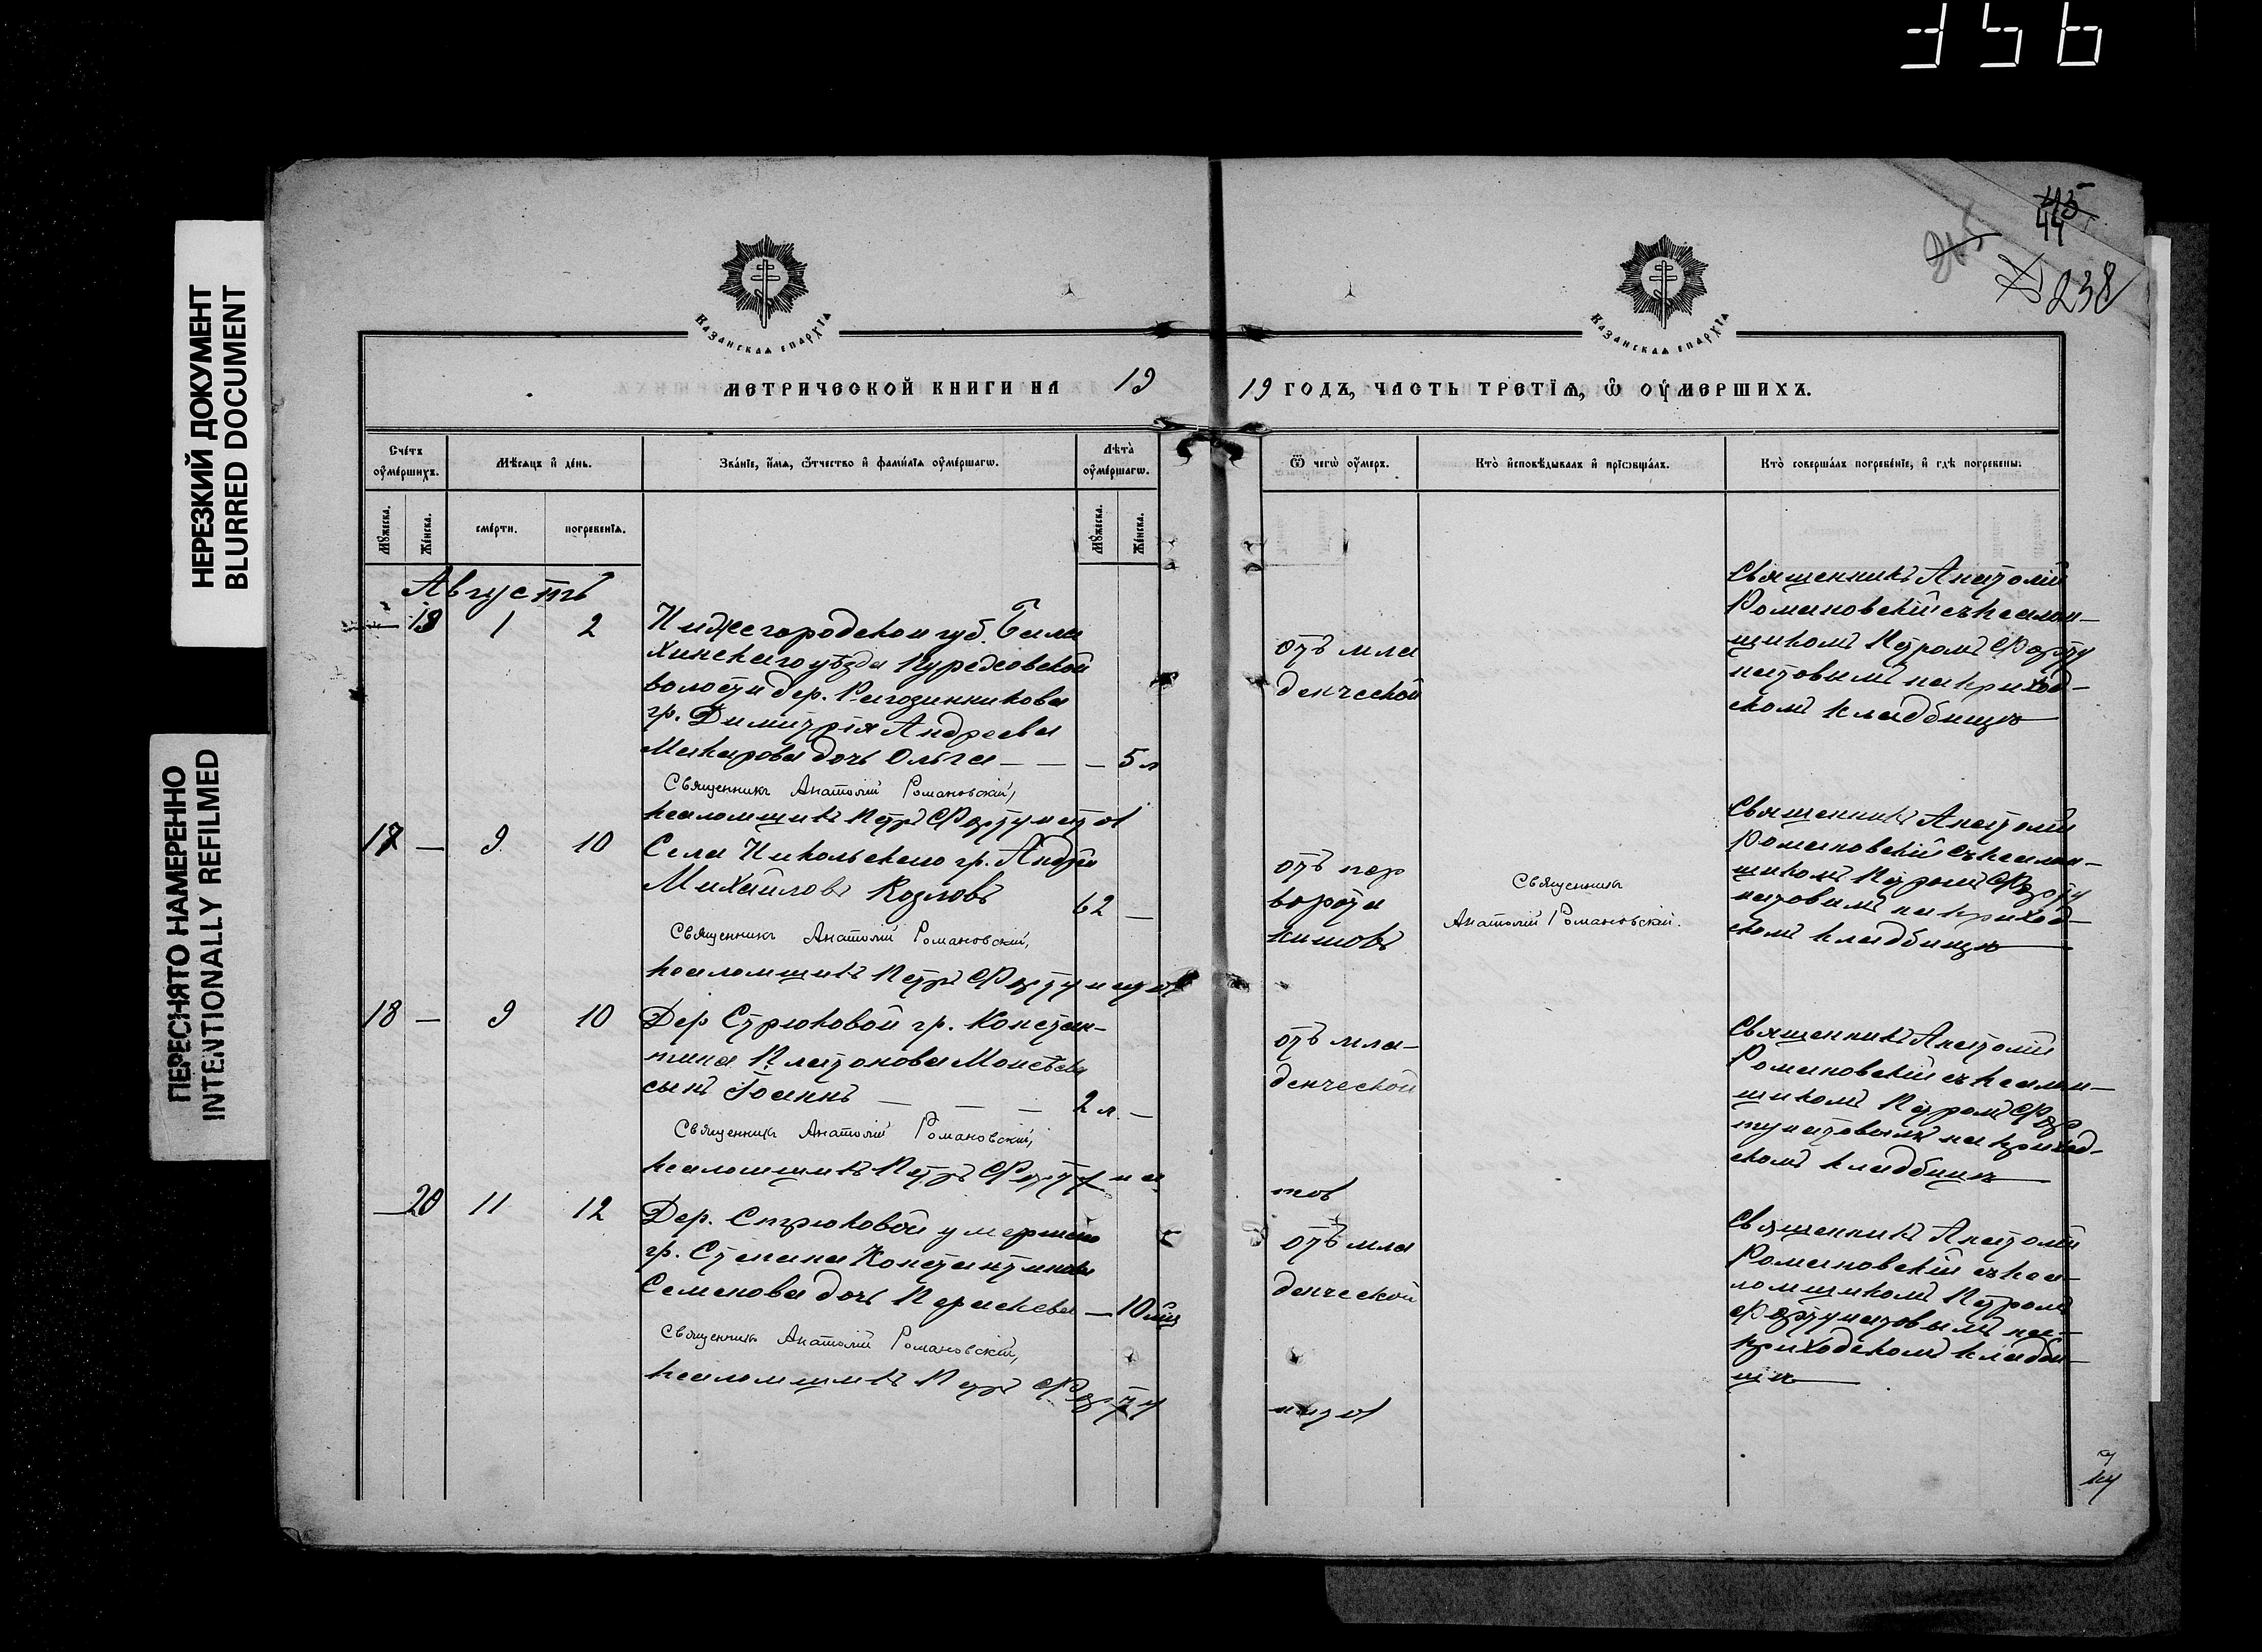 356
НЕРЕЗКИЙ ДОКУМЕНТ
BLURRED DOCUMENT
ПЕРЕСНЯТО НАМЕРЕННО
INTENTIONALLY REFILMED
45
44
238
КАЗАНСКАѦ ЕПАРХІА
КАЗАНСКАѦ ЕПАРХІА
МЕТРИЧЕСКОЙ КНИГИ НА 19
19 ГОДЪ, ЧАСТЬ ТРЕТЇѦ, Ѡ ОУМЕРШИХЪ.
Счетъ оумершихъ.
Мѣсяцъ и день.
Званїе, имѧ, ѿтчество и фамилїѧ оумершагѡ.
Лѣта оумершагѡ.
Ѿ чегѡ оумеръ.
Кто исповѣдывалъ и прїѡбщалъ.
Кто совершалъ погребенїе, и гдѣ погребены:
Мужеска.
Женска.
смерти.
погребенїѧ.
Мужеска.
Женска.
Августъ
— 19 1 2
Нижегородской губ. Бала
хинскаго уѣзда Курежовской
волости дер. Рагозинникова
гр. Димитрія Андреева
Макарова дочь Ольга — — — 5 л
отъ мла
денческой
Священникъ Анатолій
Романовскій съ псалом-
щикомъ Петромъ Форту
натовымъ на приход-
скомъ кладбищѣ
Священникъ Анатолій Романовскій,
псаломщикъ Петръ Фортунатов
17 — 9 10
Села Никольскаго гр. Андрей
Михайловъ Козловъ 62 —
отъ
ворота
кишокъ
Священникъ
Анатолій Романовскій.
Священникъ Анатолій
Романовскій съ псалом-
щикомъ Петромъ Форту
натовымъ на приход-
скомъ кладбищѣ
Священникъ Анатолій Романовскій,
псаломщикъ Петръ Фортунатов
18 — 9 10
Дер Стрюковой гр. Констан-
тина Платонова Моисѣева
сынъ Іоаннъ — — — 2 л. —
отъ мла-
денческой
Священникъ Анатолій
Романовскій съ псалом-
щикомъ Петромъ Фор
тунатовымъ на приход-
скомъ кладбищѣ
Священникъ Анатолій Романовскій,
псаломщикъ Петръ Фортуна
тов
— 20 11 12
Дер. Стрюковой умершаго
гр. Степана Константинова
Семенова дочь Параскева — 10 мц
отъ мла
денческой
Священникъ Анатолій
Романовскій съ пса-
ломщикомъ Петромъ
Фортунатовымъ на-
приходскомъ кладби-
щѣ
Священникъ Анатолій Романовскій,
псаломщикъ Петръ Форту
натов